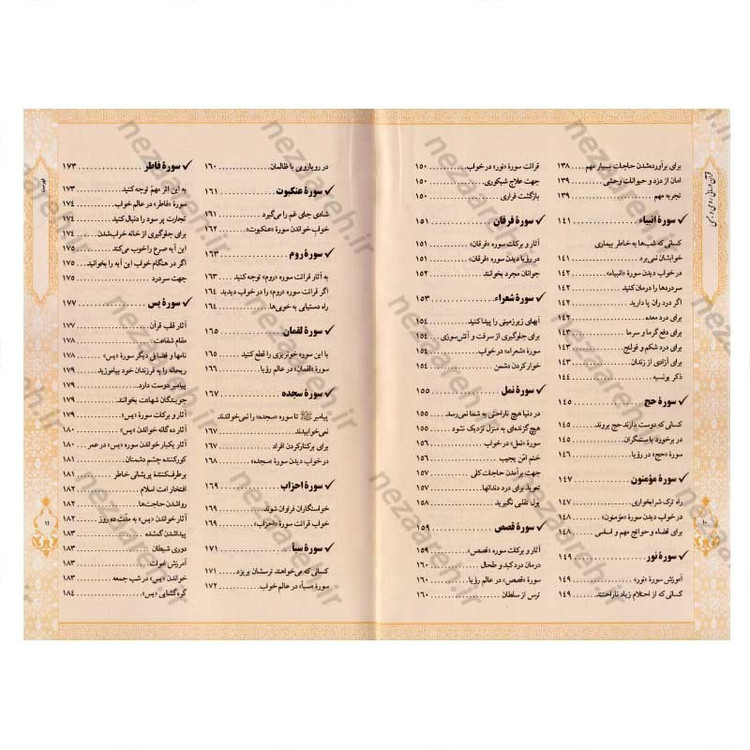 برای برآورده‌شدن حاجات بسیار مهم ۱۳۸
امان از دزد و حیوانات وحشی ۱۳۹
تجربه مهم ۱۳۹
✓ سورهٔ انبیاء ۱۴۱
کسانی که شب‌ها به خاطر بیماری
خوابشان نمی‌برد ۱۴۱
در خواب دیدن سورهٔ «انبیاء» ۱۴۲
سردردها را درمان کنید ۱۴۲
اگر درد ران پا دارید ۱۴۲
برای درد معده ۱۴۲
برای دفع گرما و سرما ۱۴۳
برای درد شکم و قولنج ۱۴۳
برای آزادی از زندان ۱۴۳
ذکر یونسیه ۱۴۴
✓ سورهٔ حج ۱۴۵
کسانی که دوست دارند حج بروند ۱۴۵
در برخورد با ستمگران ۱۴۵
سورهٔ «حج» در رؤیا ۱۴۶
✓ سورهٔ مؤمنون ۱۴۷
راه ترک شرابخواری ۱۴۷
در خواب دیدن سورهٔ «مؤمنون» ۱۴۸
برای قضاء و حوائج مهم و اساسی ۱۴۸
✓ سورهٔ نور ۱۴۹
آموزش سورهٔ «نور» ۱۴۹
کسانی که از احتلام زیاد ناراحتند ۱۴۹
قرائت سورهٔ «نور» در خواب ۱۵۰
جهت علاج شبکوری ۱۵۰
بازگشت فراری ۱۵۰
✓ سورهٔ فرقان ۱۵۱
آثار و برکات سوره «فرقان» ۱۵۱
در رؤیا دیدن سورهٔ «فرقان» ۱۵۱
جوانان مجرد بخوانند ۱۵۲
✓ سورهٔ شعراء ۱۵۳
آبهای زیرزمینی را پیدا کنید ۱۵۴
برای جلوگیری از سرقت و آتش‌سوزی ۱۵۴
سورهٔ «شعراء» در خواب ۱۵۴
خوار کردن دشمن ۱۵۴
✓ سورهٔ نمل ۱۵۵
در دنیا هیچ ناراحتی به شما نمی‌رسد ۱۵۵
هیچ گزنده‌ای به منزل نزدیک نشود ۱۵۵
سورهٔ «نمل» در خواب ۱۵۶
ختم امّن یجیب ۱۵۶
جهت برآمدن حاجات کلی ۱۵۷
تعوید برای درد دندانها ۱۵۷
پول تقلبی نگیرید ۱۵۸
✓ سورهٔ قصص ۱۵۹
آثار و برکات سورهٔ «قصص» ۱۵۹
درمان درد کبد و طحال ۱۶۰
سورهٔ «قصص» در عالم رؤیا ۱۶۰
ترس از سلطان ۱۶۰
۱۰
در رویارویی با ظالمان ۱۶۰
✓ سورهٔ عنکبوت ۱۶۱
شادی جای غم را می‌گیرد ۱۶۱
خواب خواندن سورهٔ «عنکبوت» ۱۶۲
✓ سورهٔ روم ۱۶۳
به آثار قرائت سوره «روم» توجه کنید ۱۶۳
اگر قرائت سوره «روم» را در خواب دیدید ۱۶۴
راه دستیابی به خوبی‌ها ۱۶۴
✓ سورهٔ لقمان ۱۶۵
با این سوره خونریزی را قطع کنید ۱۶۵
سورهٔ «لقمان» در عالم رؤیا ۱۶۶
✓ سورهٔ سجده ۱۶۷
پیامبر ﷺ تا سوره «سجده» را نمی‌خواندند
نمی‌خوابیدند ۱۶۷
برای برکنار کردن افراد ۱۶۷
در خواب دیدن سورهٔ «سجده» ۱۶۸
✓ سورهٔ احزاب ۱۶۹
خواستگاران فراوان شوند ۱۶۹
خواب قرائت سورهٔ «احزاب» ۱۶۹
✓ سورهٔ سبأ ۱۷۱
کسانی که می‌خواهند ترسشان بریزد ۱۷۱
سورهٔ «سبأ» در عالم خواب ۱۷۲
✓ سورهٔ فاطر ۱۷۳
به این اثر مهمّ توجه کنید ۱۷۳
سورهٔ «فاطر» در عالم خواب ۱۷۴
تجارت پر سود را دنبال کنید ۱۷۴
برای جلوگیری از خانه خراب‌شدن ۱۷۴
این آیه صرع را خوب می‌کند ۱۷۵
اگر در هنگام خواب این آیه را بخوانید ۱۷۵
جهت سردرد ۱۷۵
✓ سورهٔ یس ۱۷۷
آثار قلب قرآن ۱۷۷
مقام شفاعت ۱۷۸
نامها و فضایلی دیگر سورهٔ «یس» ۱۷۸
ریحانه را به فرزندان خود بیاموزید ۱۷۹
پیامبر دوست دارد ۱۷۹
جویندگان شهادت بخوانند ۱۷۹
آثار و برکات سورهٔ «یس» ۱۷۹
آثار ده‌گانه خواندن «یس» ۱۸۰
آثار یکبار خواندن سوره «یس» در عمر ۱۸۰
کورکننده چشم دشمنان ۱۸۱
برطرف‌کنندهٔ پریشانی خاطر ۱۸۱
افتخار امت اسلام ۱۸۲
رواشدن حاجت‌ها ۱۸۲
آثار خواندن «یس» به مدّت ده روز ۱۸۲
پیداشدن گمشده ۱۸۳
دوری شیطان ۱۸۳
آمرزش اموات ۱۸۳
خواندن «یس» در شب جمعه ۱۸۳
گره‌گشایی «یس» ۱۸۴
فهرست
۱۱
nezaareh.ir